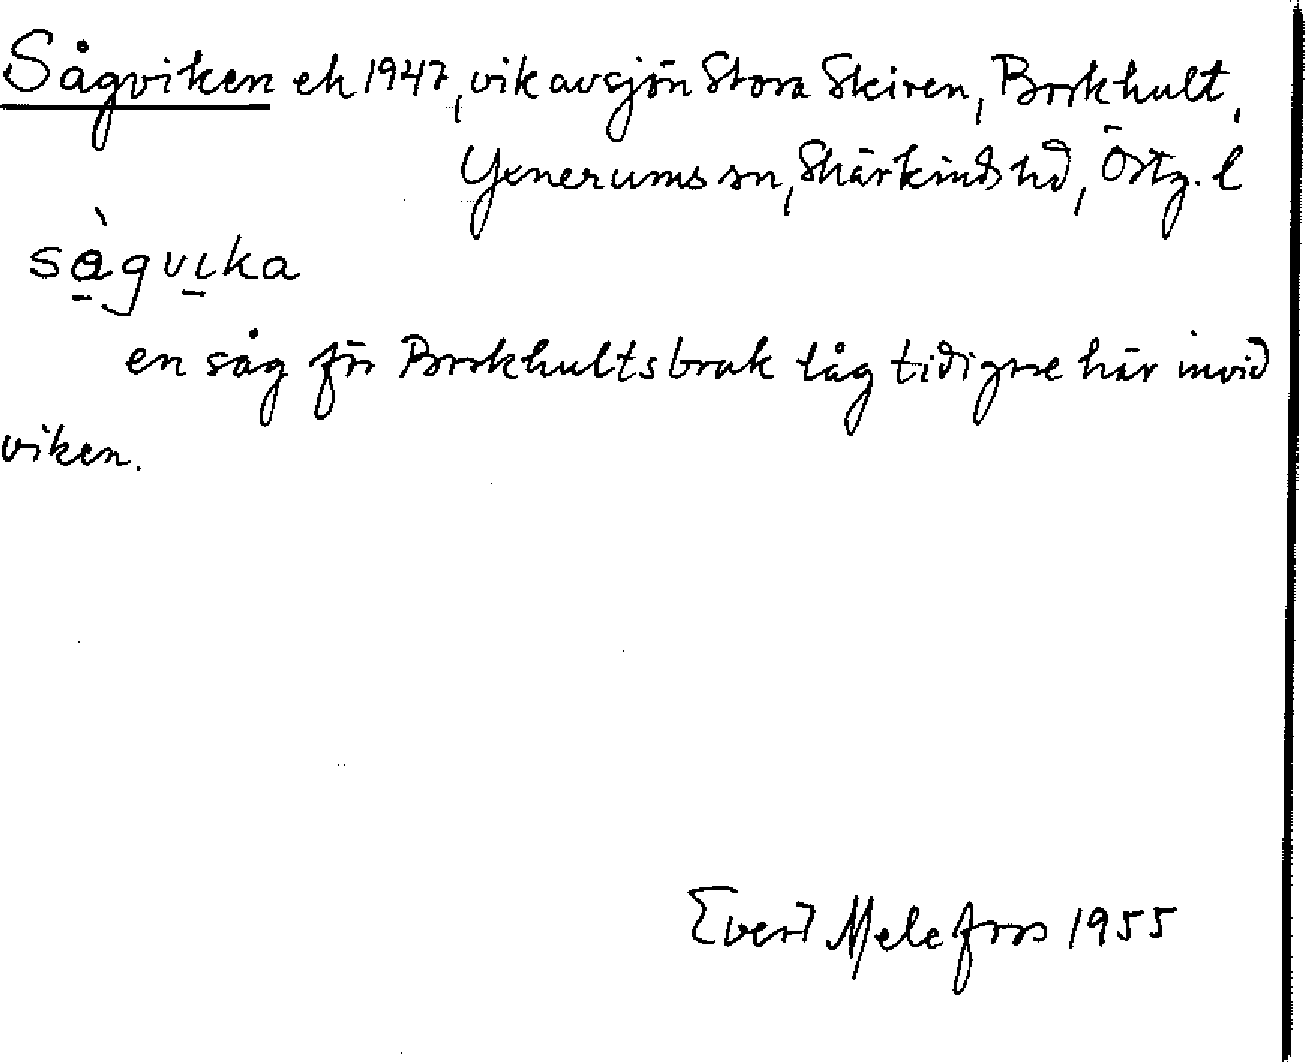 Sågviken ek 1947, vik av sjön Stora Skiren, Borkhult,
Yxnerums sn, Skärkinds hd, Östg. l
sàgvıka
en såg för Borkhults bruk låg tidigare här invid
viken.
Evert Melefors 1955